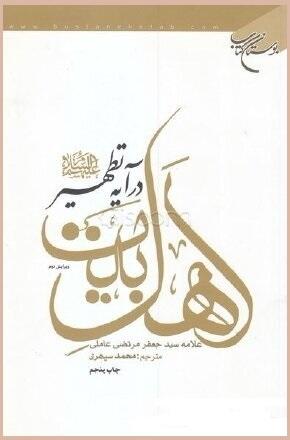 www.bustaneketab.com
بوستان کتاب
اهل بیت
علیهم السلام
در آیه تطهیر
ویرایش دوم
علامه سید جعفر مرتضی عاملی
مترجم: محمد سپهری
چاپ پنجم